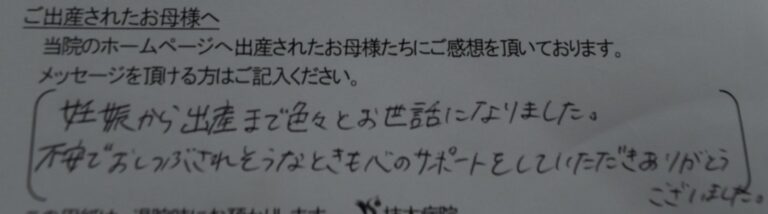 ご出産されたお母様へ
当院のホームページへ出産されたお母様たちにご感想を頂いております。
メッセージを頂ける方はご記入ください。
妊娠から出産まで色々とお世話になりました。
不安でおしつぶされそうなときも心のサポートをしていただきありがとう
ございました。